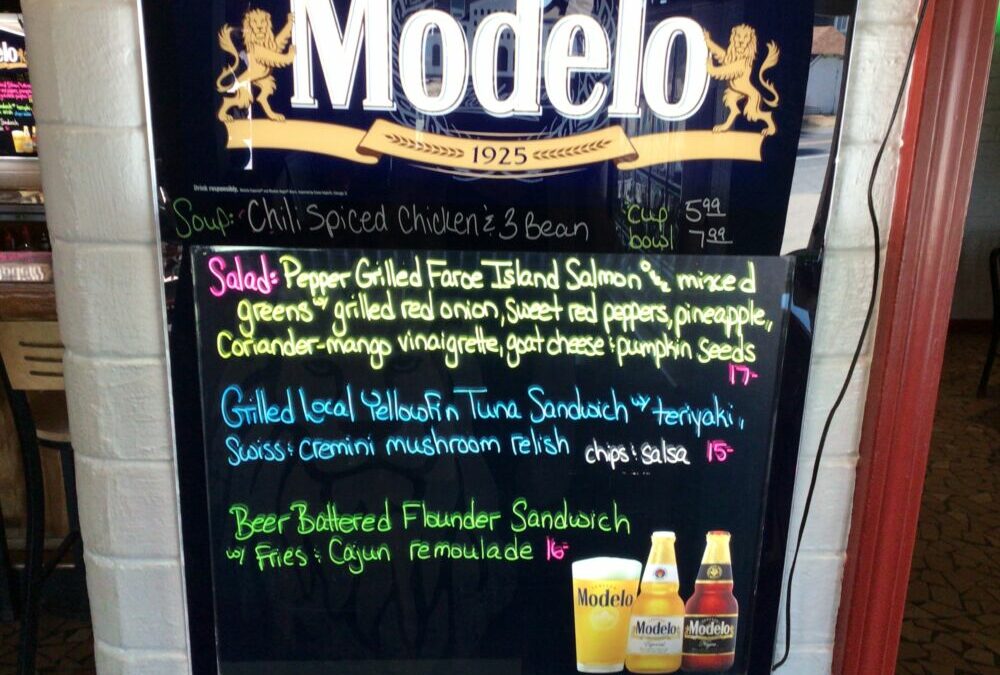 Modelo
1925
Drink responsibly.
Soup: Chili Spiced Chicken & 3 Bean cup 5.99
bowl 7.99
Salad: Pepper Grilled Faroe Island Salmon o/ mixed
greens w/ grilled red onion, sweet red peppers, pineapple,
Coriander-mango vinaigrette, goat cheese & pumpkin seeds
17-
Grilled Local Yellowfin Tuna Sandwich w/ teriyaki,
Swiss & cremini mushroom relish chips & salsa 15-
Beer Battered Flounder Sandwich
w/ Fries & Cajun remoulade 16-
Modelo
Modelo
Especial
Modelo
Negra